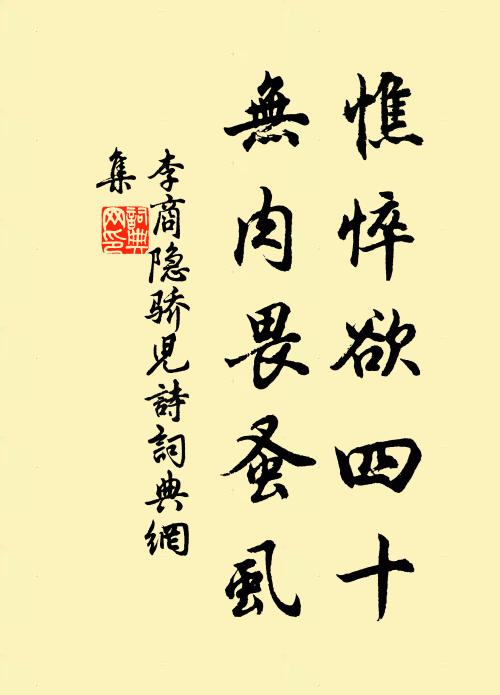 憔悴欲四十
無肉畏蚤虱
李商隐骄児詩詞典網
集
詞典网印